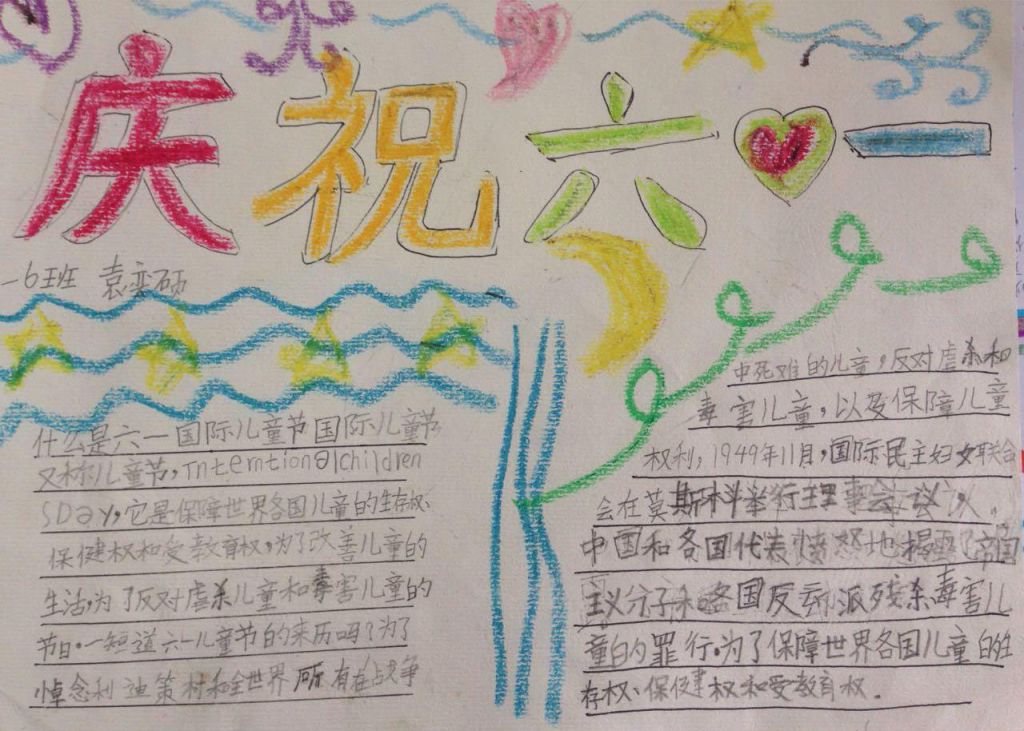 庆祝六一
一6班 袁栾硕
什么是六一国际儿童节国际儿童节
又称儿童节,Interntional children
SDay,它是保障世界各国儿童的生存权、
保健权和受教育权,为了改善儿童的
生活,为了反对虐杀儿童和毒害儿童的
节日。一短道六一儿童节的来历吗?为了
悼念利迪策村和全世界所有在战争
中死难的儿童,反对虐杀和
毒害儿童,以及保障儿童
权利,1949年11月,国际民主妇女联合
会在莫斯科举行理事会议,
中国和各国代表愤怒地揭露了帝国
主义分子和各国反动派残杀毒害儿
童的罪行。为了保障世界各国儿童的生
存权、保健权和受教育权.